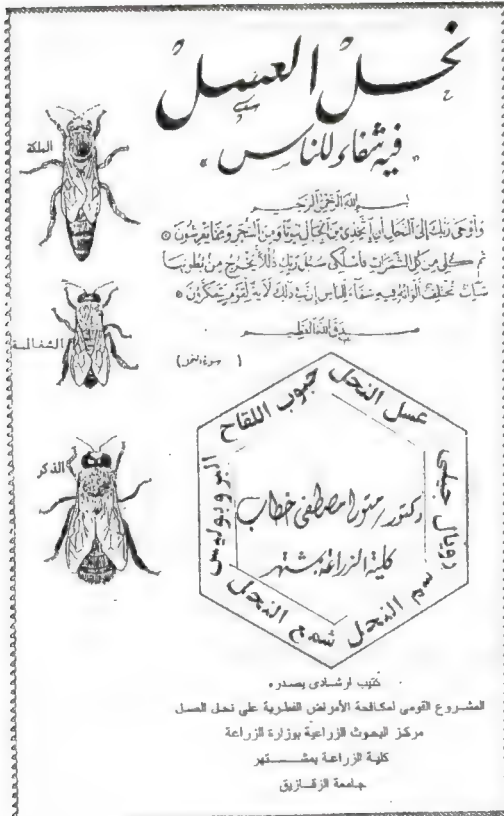 نحل العسل
"فيه شفاء للناس"
بسم الله الرحمن الرحيم
وأوحى ربك إلى النحل أن اتخذي من الجبال بيوتا ومن الشجر ومما يعرشون
ثم كلي من كل الثمرات فاسلكي سبل ربك ذللا يخرج من بطونها
شراب مختلف ألوانه فيه شفاء للناس إن في ذلك لآية لقوم يتفكرون
صدق الله العظيم
( سورة النحل )
الملكة
الشغالة
الذكر
عسل النحل
حبوب اللقاح
رويال جيلى
البروبوليس
سم النحل
شمع النحل
دكتور / متولى مصطفى خطاب
كلية الزراعة بمشتهر
كتيب ارشادى يصدره
المشروع القومى لمكافحة الأمراض الفطرية على نحل العسل
مركز البحوث الزراعية بوزارة الزراعة
كلية الزراعة بمشتهر
جامعة الزقازيق